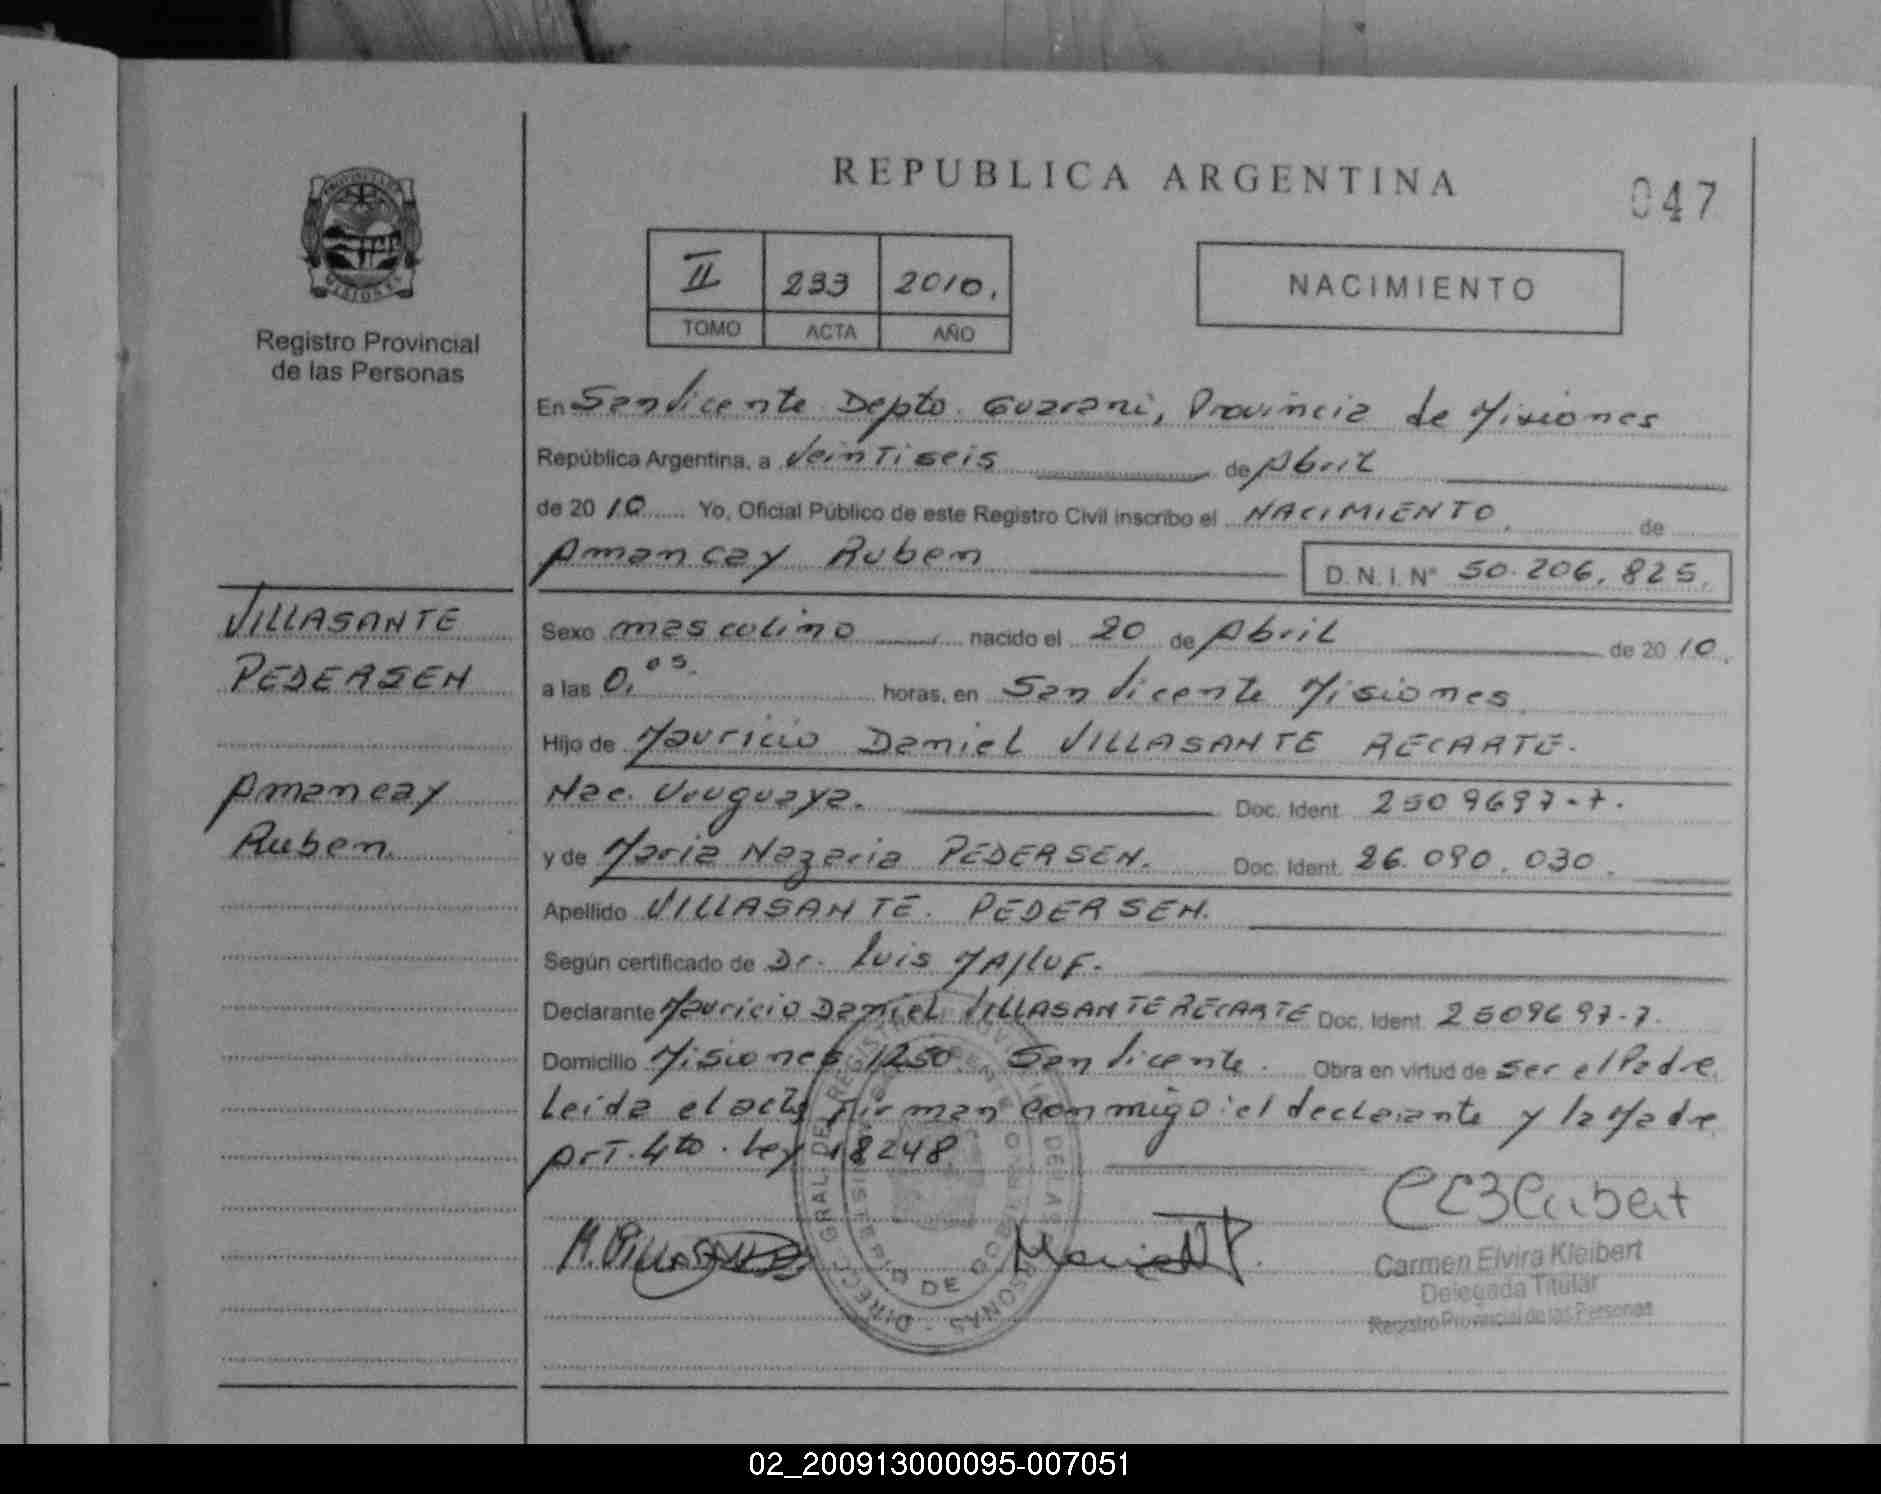 REPUBLICA ARGENTINA
047
II 233 2010.
TOMO ACTA AÑO
NACIMIENTO
PROVINCIA DE MISIONES
Registro Provincial
de las Personas
En San Vicente Depto. Guarani, Provincia de Misiones
República Argentina, a Veintiseis de Abril
de 2010 Yo, Oficial Público de este Registro Civil inscribo el NACIMIENTO, de
Amancay Ruben D.N.I. Nº 50.206.825.
VILLASANTE
PEDERSEN
Amancay
Ruben.
Sexo masculino nacido el 20 de Abril de 2010.
a las 0,05. horas, en San Vicente Misiones.
Hijo de Mauricio Daniel VILLASANTE RECARTE.
Nac. Uruguaya. Doc. Ident. 2509697-7.
y de Maria Nazaria PEDERSEN. Doc. Ident. 26.090.030.
Apellido VILLASANTE. PEDERSEN.
Según certificado de Dr. Luis MAJLUF.
Declarante Mauricio Daniel VILLASANTE RECARTE Doc. Ident. 2509697-7.
Domicilio Misiones 1250 San Vicente. Obra en virtud de ser el Padre
Leida el acta firman conmigo: el declarante y la Madre
Art. 4to. Ley 18248
M. VILLASANTE
Maria N P.
Carmen Elvira Kleibert
Delegada Titular
Registro Provincial de las Personas
DIRECC. GRAL. DEL REGISTRO PROVINCIAL DE LAS PERSONAS
MINISTERIO DE GOBIERNO
02_200913000095-007051